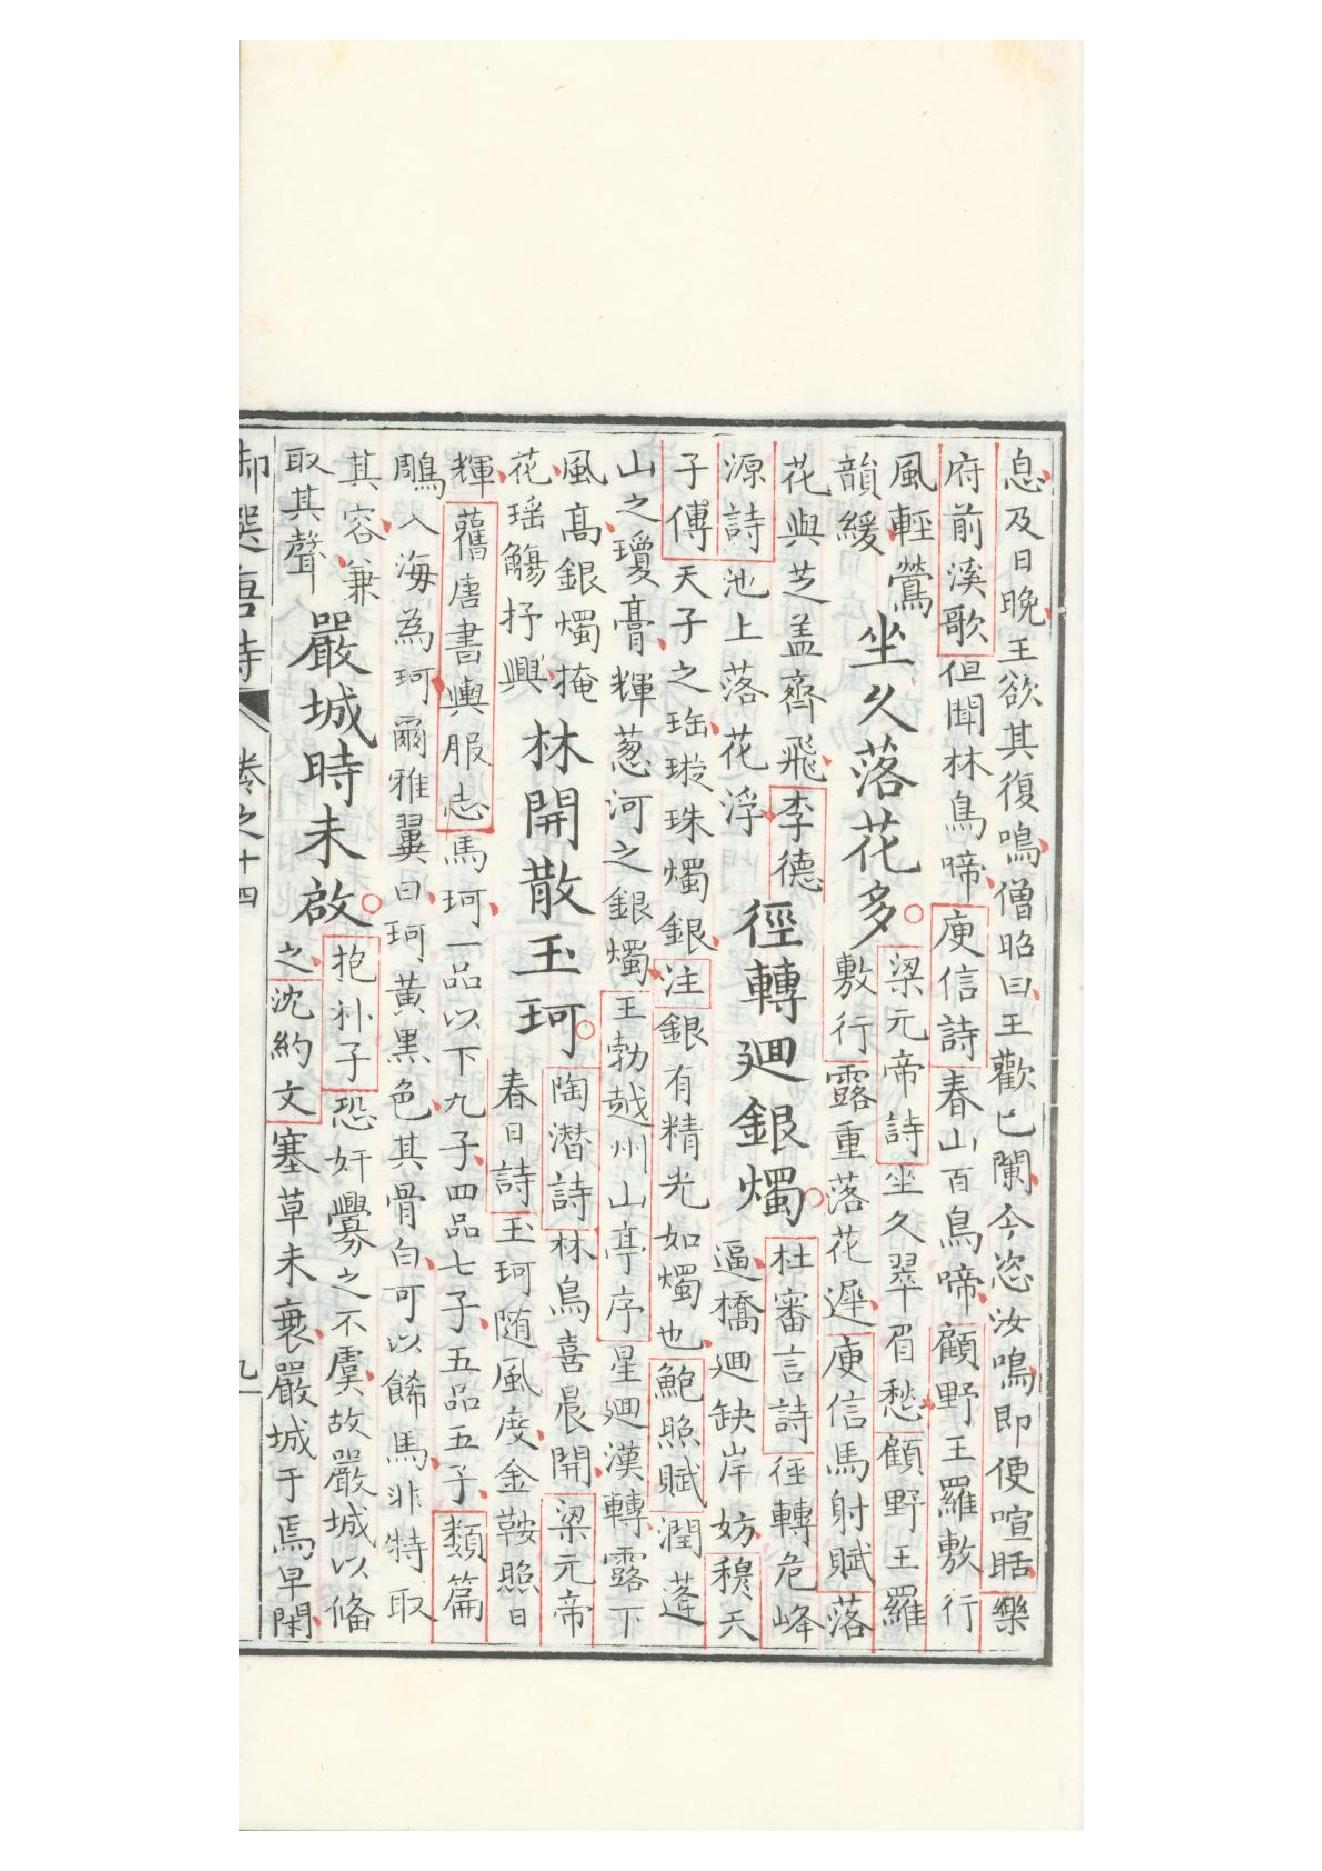 息及日晚王欲其復鳴僧昭曰王歡已闌今恣汝鳴即便喧聒樂
府前溪歌但聞林鳥啼庾信詩春山百鳥啼顧野王羅敷行
風輕鶯
韻緩
坐久落花多
梁元帝詩坐久翠眉愁顧野王羅
敷行露重落花遲庾信馬射賦落
花與芝盖齊飛李德
源詩池上落花浮
徑轉廻銀燭
杜審言詩徑轉危峰
逼橋廻缺岸妨穆天
子傳天子之珤璇珠燭銀注銀有精光如燭也鮑照賦潤蓬
山之瓊膏輝葱河之銀燭王勃越州山亭序星廻漢轉露下
風高銀燭掩
花瑶觴抒興
林開散玉珂
陶潜詩林鳥喜晨開梁元帝
春日詩玉珂随風度金鞍照日
輝舊唐書輿服志馬珂一品以下九子四品七子五品五子類篇
鵰入海為珂爾雅翼曰珂黃黑色其骨白可以餙馬非特取
其容兼
取其聲
嚴城時未啟
抱朴子恐奸釁之不虞故嚴城以俻
之沈約文塞草未衰嚴城于焉早閉
御選唐詩
卷之十四
九